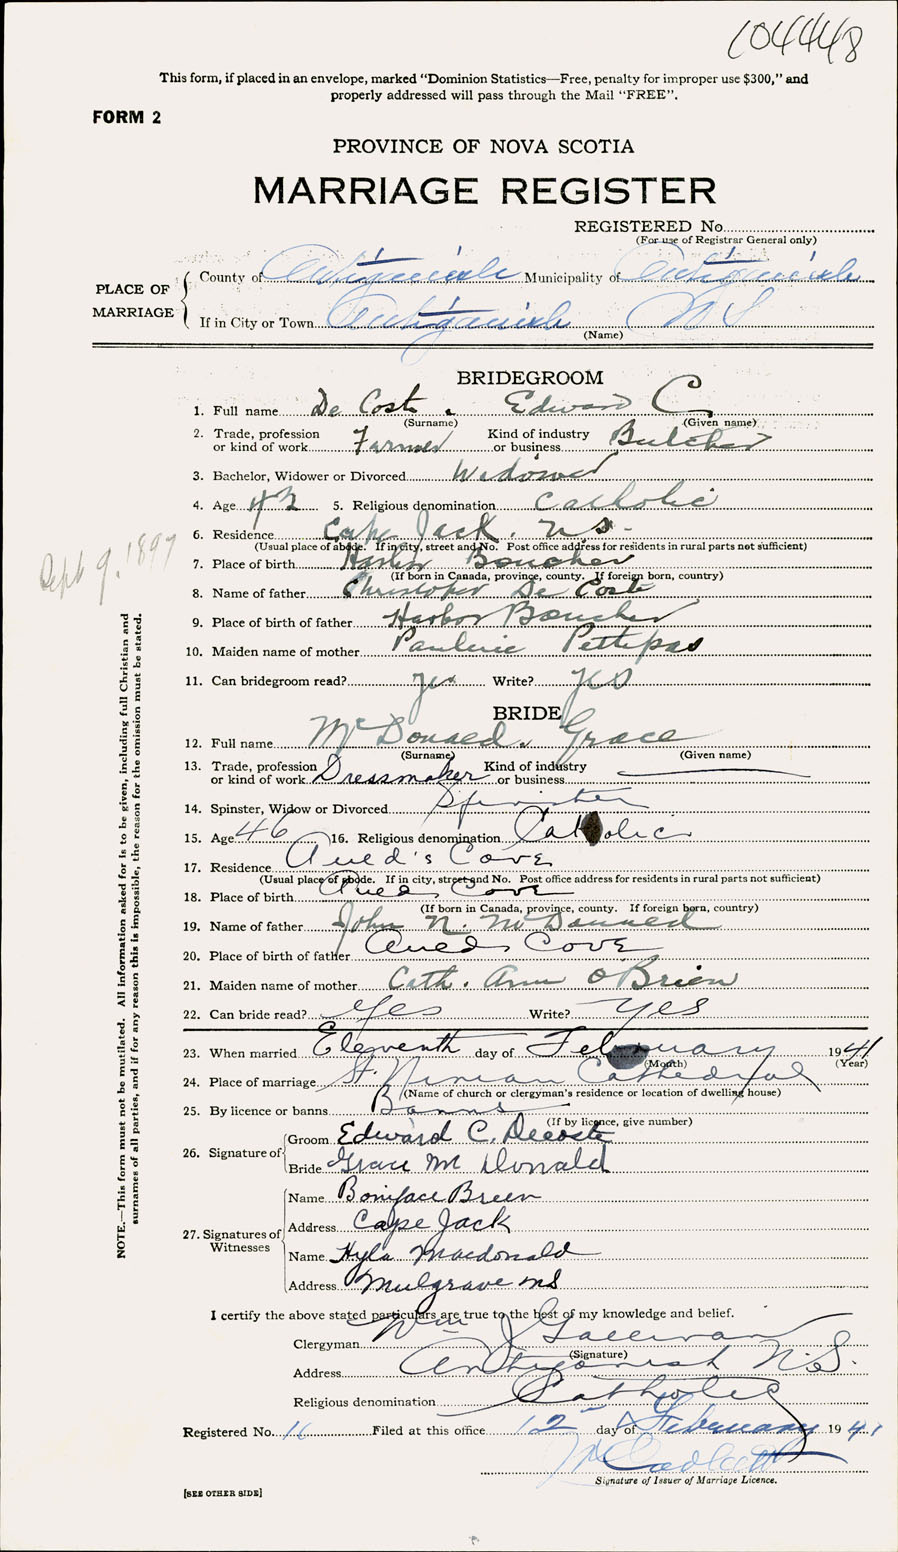 104448
This form, if placed in an envelope, marked “Dominion Statistics—Free, penalty for improper use $300,” and
properly addressed will pass through the Mail “FREE”.
FORM 2
PROVINCE OF NOVA SCOTIA
MARRIAGE REGISTER
REGISTERED No.
(For use of Registrar General only)
PLACE OF MARRIAGE
County of Antigonish Municipality of Antigonish
If in City or Town Antigonish N S
(Name)
BRIDEGROOM
1. Full name De Coste, Edward C.
(Surname) (Given name)
2. Trade, profession or kind of work Farmer Kind of industry or business Butcher
3. Bachelor, Widower or Divorced Widower
4. Age 42 5. Religious denomination Catholic
6. Residence Cape Jack, N S.
(Usual place of abode. If in city, street and No. Post office address for residents in rural parts not sufficient)
Sept 9, 1897
7. Place of birth Harbor Boucher
(If born in Canada, province, county. If foreign born, country)
8. Name of father Christopher De Coste
9. Place of birth of father Harbor Boucher
10. Maiden name of mother Pauline Pettipas
11. Can bridegroom read? yes Write? yes
BRIDE
12. Full name McDonald, Grace
(Surname) (Given name)
13. Trade, profession or kind of work Dressmaker Kind of industry or business
14. Spinster, Widow or Divorced Spinster
15. Age 46 16. Religious denomination Catholic
17. Residence Auld's Cove
(Usual place of abode. If in city, street and No. Post office address for residents in rural parts not sufficient)
18. Place of birth Aulds Cove
(If born in Canada, province, county. If foreign born, country)
19. Name of father John N. McDonald
20. Place of birth of father Aulds Cove
21. Maiden name of mother Cath. Ann O'Brien
22. Can bride read? Yes Write? Yes
23. When married Eleventh day of February 1941
(Month) (Year)
24. Place of marriage St. Ninian Cathedral
(Name of church or clergyman's residence or location of dwelling house)
25. By licence or banns Banns
(If by licence, give number)
26. Signature of
Groom Edward C. Decoste
Bride Grace McDonald
27. Signatures of Witnesses
Name Boniface Breen
Address Cape Jack
Name Hyla Macdonald
Address Mulgrave NS
I certify the above stated particulars are true to the best of my knowledge and belief.
Clergyman Wm J Gallivan
(Signature)
Address Antigonish N.S.
Religious denomination Catholic
Registered No. 16 Filed at this office 12 day of February 1941
Signature of Issuer of Marriage Licence.
[SEE OTHER SIDE]
NOTE.—This form must not be mutilated. All information asked for is to be given, including full Christian and
surnames of all parties, and if for any reason this is impossible, the reason for the omission must be stated.